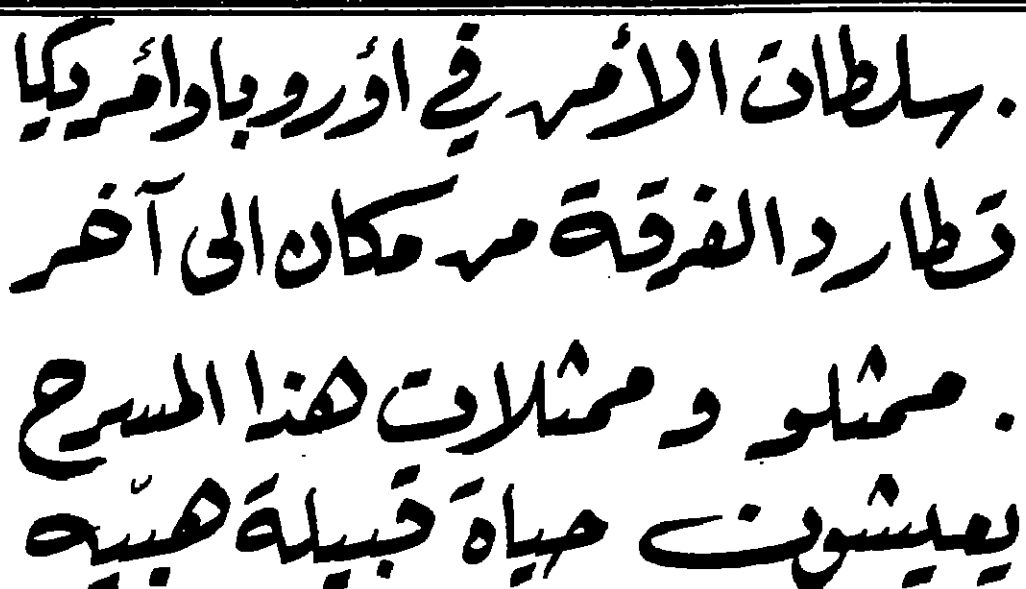 . سلطات الأمن في أوروبا وأمريكا
تطارد الفرقة من مكان الى آخر
. ممثلو وممثلات هذا المسرح
يعيشون حياة قبيلة هبيّه